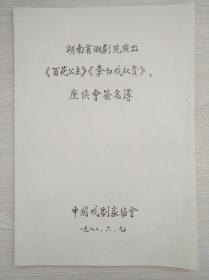 湖南省湘剧院演出
《百花公主》《李白戏权贵》，
座谈會签名簿
中國戏剧家協會
一九八〇.六.九